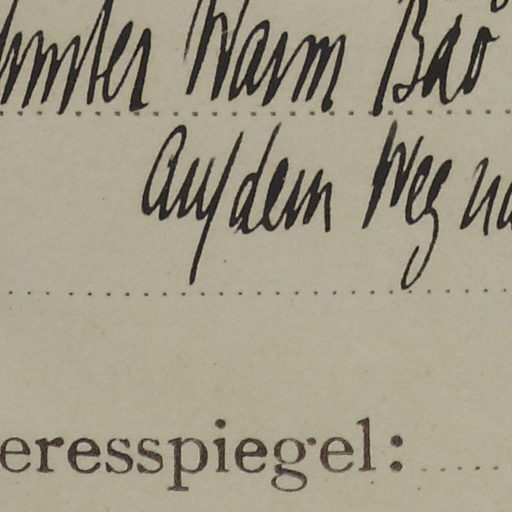 hinter Warm Bad
Auf dem Weg na
eresspiegel: